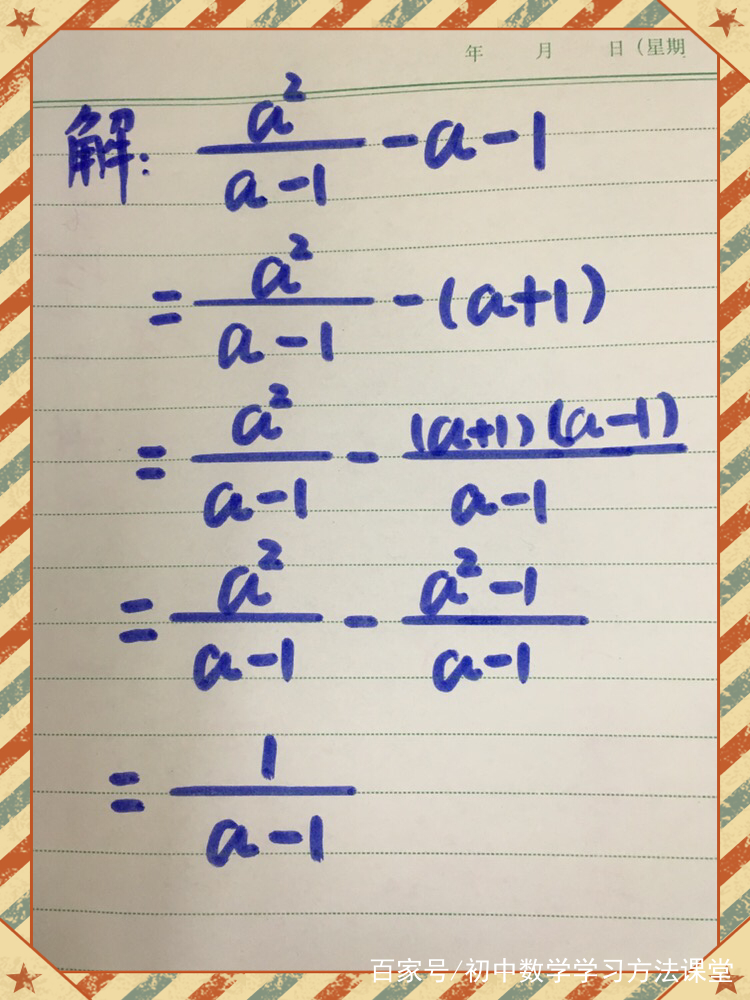 年 月 日（星期
解: a²/(a-1) -a-1
= a²/(a-1) -(a+1)
= a²/(a-1) - (a+1)(a-1)/(a-1)
= a²/(a-1) - (a²-1)/(a-1)
= 1/(a-1)
百家号/初中数学学习方法课堂